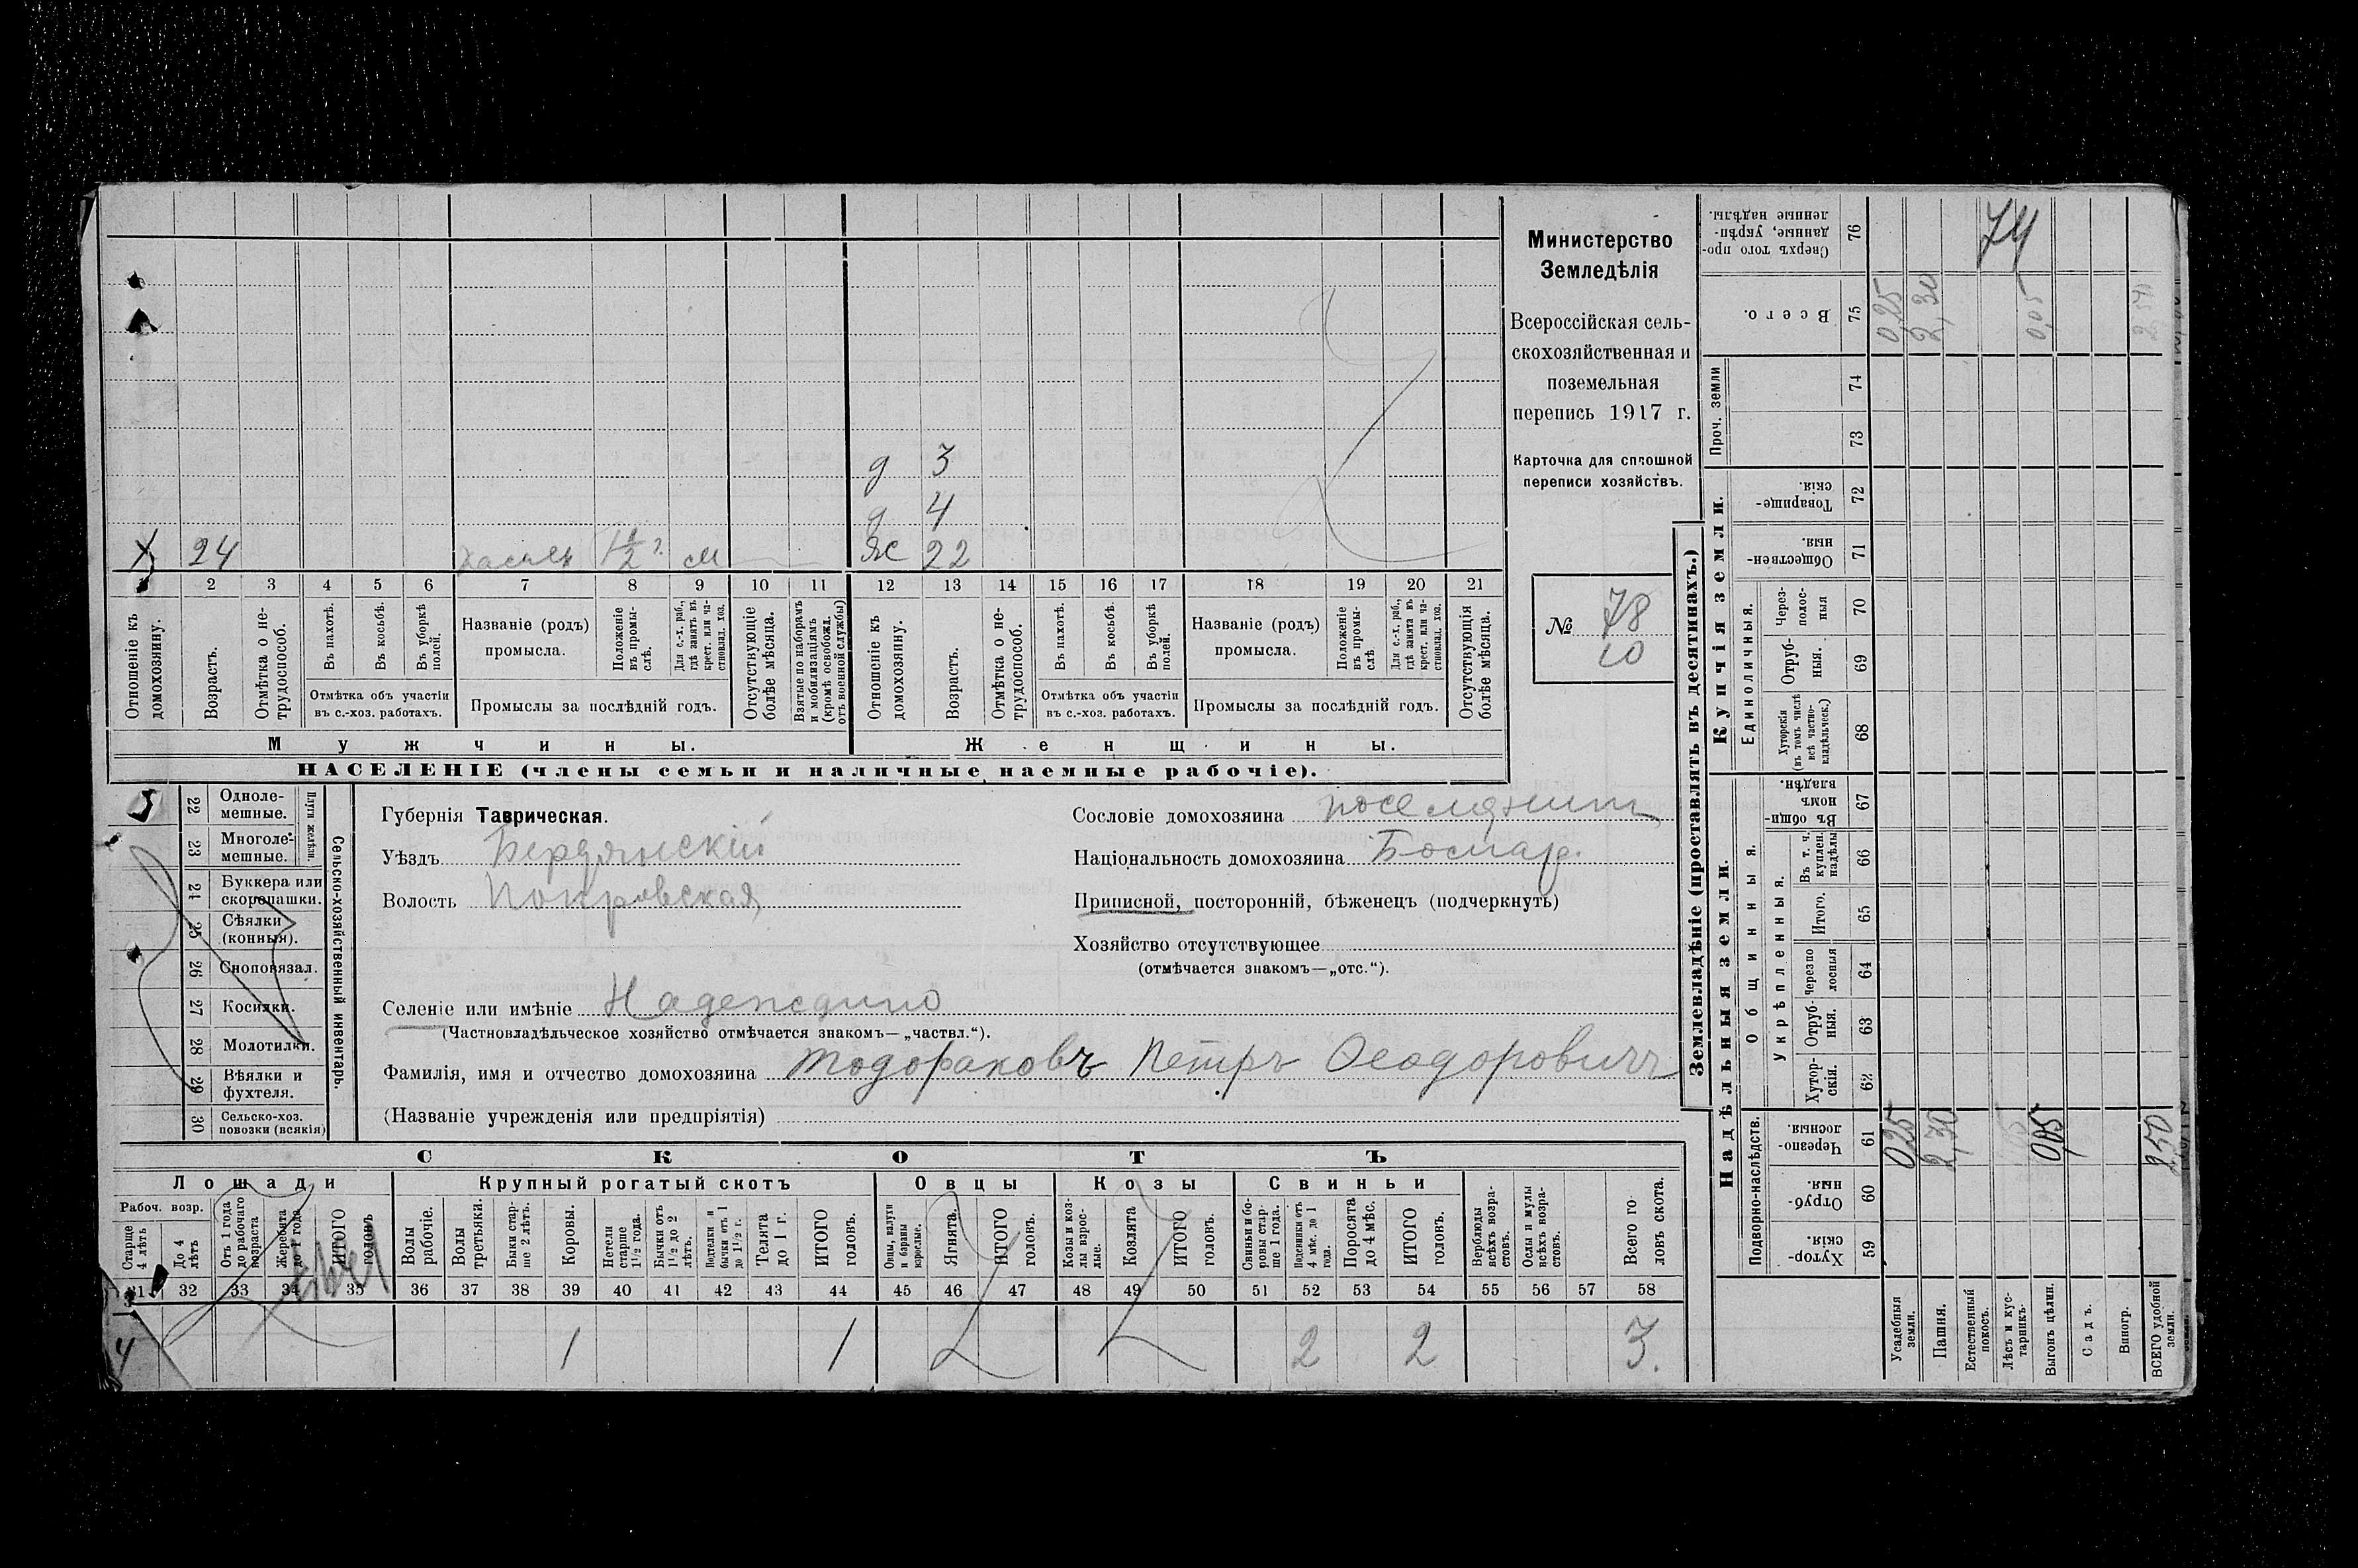 Министерство
Земледѣлія
Всероссійская сель-
скохозяйственная и
поземельная
перепись 1917 г.
Карточка для сплошной
переписи хозяйствъ.
№ 78
10
д 3
д 4
Х 24 1½ м ж 22
1 2 3 4 5 6 7 8 9 10 11 12 13 14 15 16 17 18 19 20 21
Отношеніе къ домохозяину.
Возрастъ.
Отмѣтка о не-трудоспособ.
Въ пахотѣ.
Въ косьбѣ.
Въ уборкѣ полей.
Отмѣтка объ участіи въ с.-хоз. работахъ.
Названіе (родъ) промысла.
Положеніе въ промы-слѣ.
Для с.-х. раб., гдѣ занятъ въ крест. или ча-стновлад. хоз.
Промыслы за послѣдній годъ.
Отсутствующіе болѣе мѣсяца.
Взятые по наборамъ и мобилизаціямъ (кромѣ освобожд. отъ военной службы)
Отношеніе къ домохозяину.
Возрастъ.
Отмѣтка о не-трудоспособ.
Въ пахотѣ.
Въ косьбѣ.
Въ уборкѣ полей.
Отмѣтка объ участіи въ с.-хоз. работахъ.
Названіе (родъ) промысла.
Положеніе въ промы-слѣ
Для с.-х. раб., гдѣ занята въ крест. или ча-стновлад. хоз.
Промыслы за послѣдній годъ.
Отсутствующія болѣе мѣсяца.
Мужчины. Женщины.
НАСЕЛЕНІЕ (члены семьи и наличные наемные рабочіе).
22 Одноле-мешные.
23 Многоле-мешные.
Плуги желѣзн.
24 Буккера или скоропашки.
25 Сѣялки (конныя).
26 Сноповязал.
27 Косилки.
28 Молотилки.
29 Вѣялки и фухтеля.
30 Сельско-хоз. повозки (всякія)
Сельско-хозяйственный инвентарь.
Губернія Таврическая.
Уѣздъ Бердянскій
Волость Покровская
Сословіе домохозяина поселянин
Національность домохозяина Болгар.
Приписной, посторонній, бѣженецъ (подчеркнуть)
Хозяйство отсутствующее
(отмѣчается знакомъ—„отс.“).
Селеніе или имѣніе Надеждино
(Частновладѣльческое хозяйство отмѣчается знакомъ—„частвл.“).
Фамилія, имя и отчество домохозяина Тодораковъ Петръ Ѳеодоровичъ
(Названіе учрежденія или предпріятія)
СКОТЪ
Лошади Крупный рогатый скотъ Овцы Козы Свиньи
Рабоч. возр.
Старше 4 лѣтъ
До 4 лѣтъ
Отъ 1 года до рабочаго возраста
Жеребята до 1 года
ИТОГО головъ
Волы рабочіе.
Волы третьяки.
Быки стар-ше 2 лѣтъ.
Коровы.
Нетели старше 1½ года.
Бычки отъ 1½ до 2 лѣтъ.
Подтелки и бычки отъ 1 до 1½ г.
Телята до 1 г.
ИТОГО головъ.
Овцы, валухи и бараны взрослые.
Ягнята.
ИТОГО головъ.
Козы и коз-лы взрос-лые.
Козлята
ИТОГО головъ.
Свиньи и бо-ровы стар-ше 1 года.
Подсвинки отъ 4 мѣс. до 1 года.
Поросята до 4 мѣс.
ИТОГО головъ.
Верблюды всѣхъ возра-стовъ.
Ослы и мулы всѣхъ возра-стовъ.
Всего го-ловъ скота.
31 32 33 34 35 36 37 38 39 40 41 42 43 44 45 46 47 48 49 50 51 52 53 54 55 56 57 58
4 1 1 2 2 3.
Землевладѣніе (проставлять въ десятинахъ.)
Надѣльныя земли. Купчія земли.
Подворно-наслѣдств.
Общинныя.
Укрѣпленныя.
Единоличныя.
Проч. земли
Хутор-скія. 59
Отруб-ныя. 60
Черезпо-лосныя. 61
Хутор-скія. 62
Отруб-ныя. 63
Черезпо-лосныя 64
Итого. 65
Въ т. ч. куплен. надѣлы 66
Въ общин-номъ владѣн. 67
Хуторскія (въ томъ числѣ всѣ частно-владѣльческ.) 68
Отруб-ныя. 69
Через-полос-ныя 70
Обществен-ныя. 71
Товарище-скія. 72
73
74
Всего. 75
Сверхъ того про-данные, укрѣп-ленные надѣлы. 76
74
Усадебныя земли. 0,25 0,25
Пашня. 2,30 2,30
Естественный покосъ.
Лѣсъ и кус-тарникъ.
Выгонъ цѣлин. 0,05 0,05
Садъ.
Виногр.
ВСЕГО удобной земли. 2,50